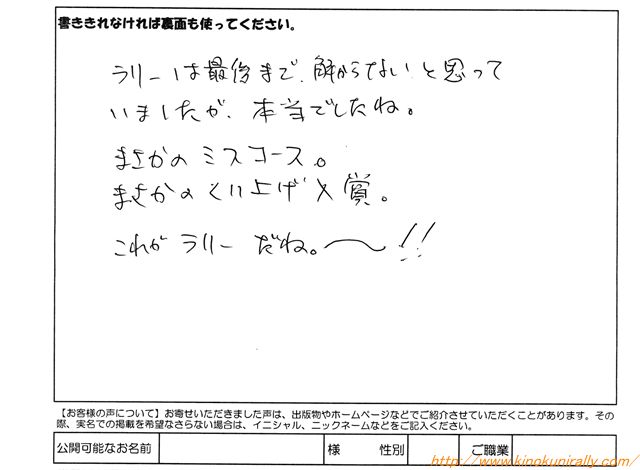 書ききれなければ裏面も使ってください。
ラリーは最後まで、解からないと思って
いましたが、本当でしたね。
まさかのミスコース。
まさかのくり上げ入賞。
これがラリーだね。〜!!
【お客様の声について】お寄せいただきました声は、出版物やホームページなどでご紹介させていただくことがあります。その
際、実名での掲載を希望なさらない場合は、イニシャル、ニックネームなどをご記入ください。
公開可能なお名前 様 性別 ご職業
http://www.kinokunirally.com